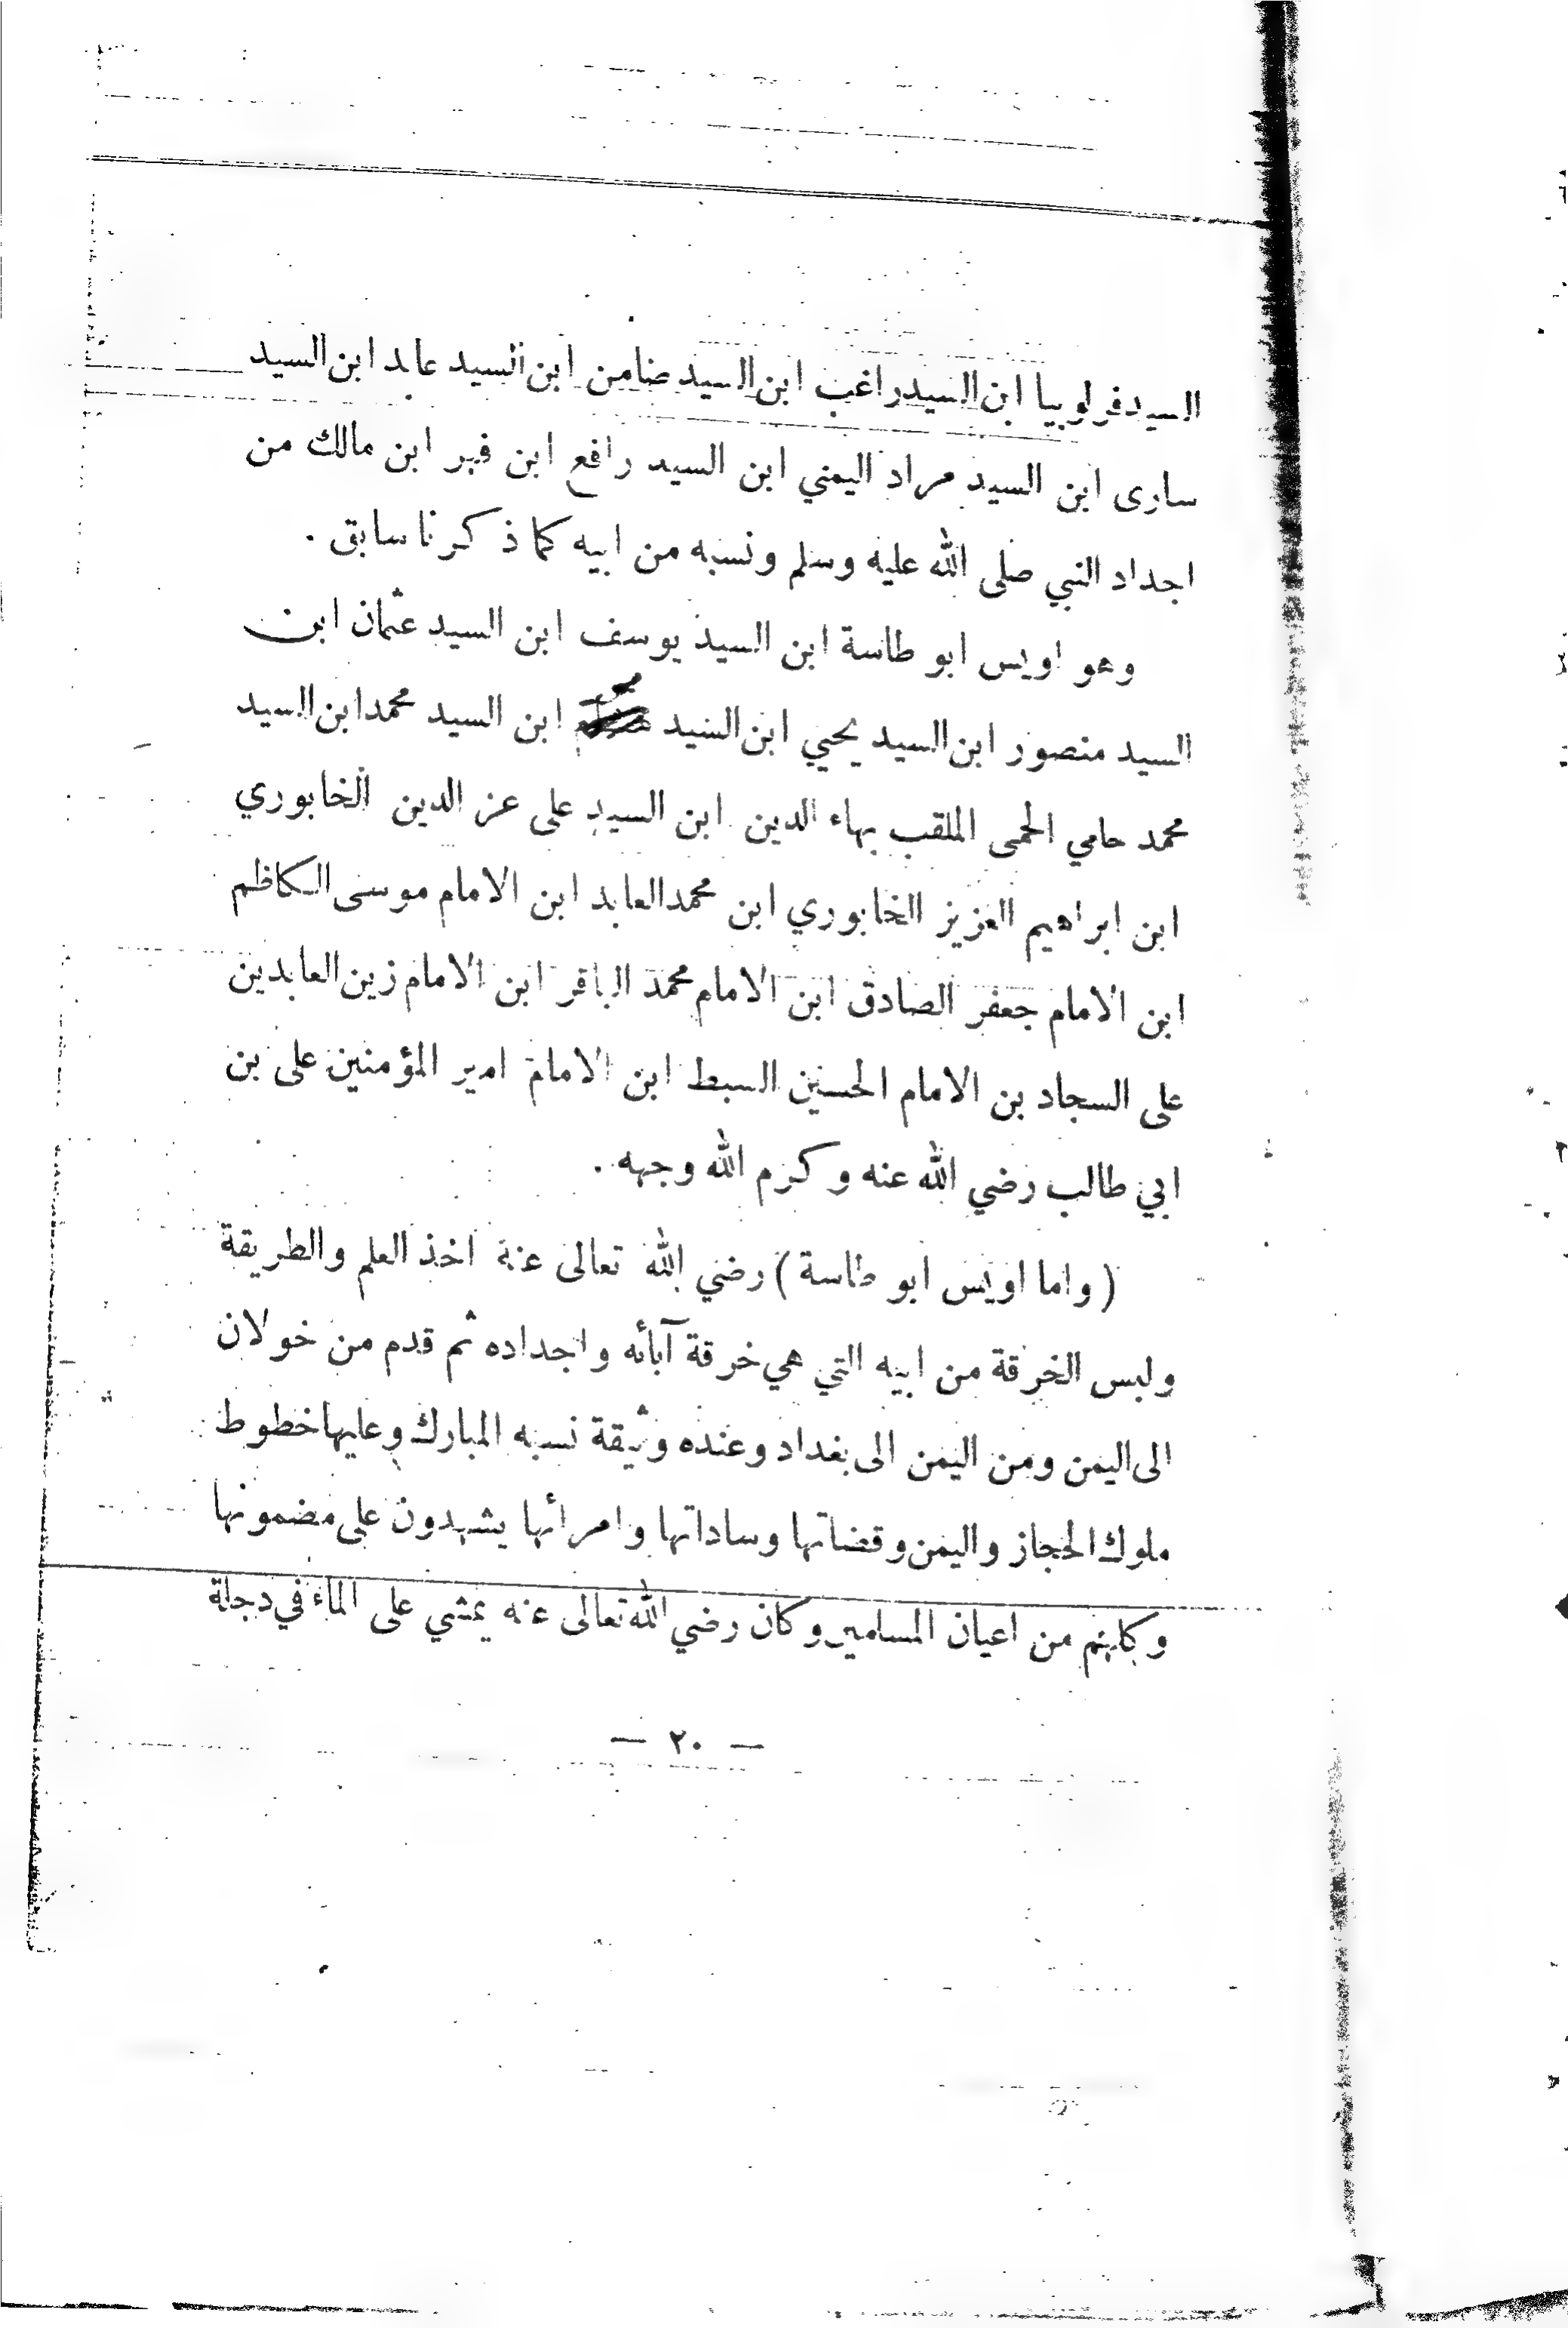 السيد فرلوبيا ابن السيد راغب ابن السيد ضامن ابن السيد عابد ابن السيد
سارى ابن السيد مراد اليمني ابن السيد رافع ابن فهر ابن مالك من
اجداد النبي صلى الله عليه وسلم ونسبه من ابيه كما ذكرنا سابق .
وهو اويس ابو طاسة ابن السيد يوسف ابن السيد عثمان ابن
السيد منصور ابن السيد يحيي ابن السيد ابن السيد محمد ابن السيد
محمد حامي الحمى الملقب بهاء الدين ابن السيد على عز الدين الخابوري
ابن ابراهيم العزيز الخابوري ابن محمد العابد ابن الامام موسى الكاظم
ابن الامام جعفر الصادق ابن الامام محمد الباقر ابن الامام زين العابدين
على السجاد بن الامام الحسين السبط ابن الامام امير المؤمنين على بن
ابي طالب رضي الله عنه وكرم الله وجهه .
( واما اويس ابو طاسة ) رضي الله تعالى عنه اخذ العلم والطريقة
ولبس الخرقة من ابيه التي هي خرقة آبائه واجداده ثم قدم من خولان
الى اليمن ومن اليمن الى بغداد وعنده وثيقة نسبه المبارك وعليها خطوط
ملوك الحجاز واليمن وقضاتها وساداتها وامرائها يشهدون على مضمونها
وكلهم من اعيان المسلمين وكان رضي الله تعالى عنه يمشي على الماء في دجلة
— ٢٠ —